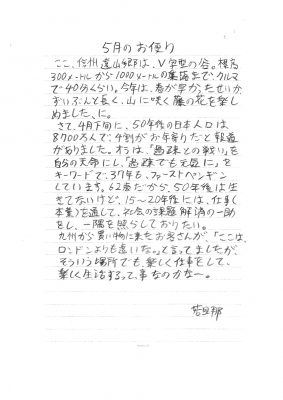 5月のお便り
ここ、信州遠山郷は、V字型の谷。標高
300メートルから1000メートルの集落まで、クルマ
で40分くらい。今年は、春が早かったせいか
ずいぶんと長く、山に咲く藤の花を楽し
めました、に。
さて、4月下旬に、50年後の日本人口は
8700万人で、4割がお年寄りだと報道
がありました。オラは「過疎との戦い」を
自分の天命にし、「過疎でも元気に」を
キーワードで、37年も、ファーストペンギン
しています。62歳だから、50年後は生
きてないけど、15〜20年後には、仕事(
本業)を通して、社会の課題解消の一助
をし、一隅を照らしておりたい。
九州から買い物に来たお客さんが、「ここは、
ロンドンよりも遠いわ。」と言ってましたが、
そういう場所でも、楽しく仕事をして、
楽しく生活するって、事なのかな〜。
若旦那